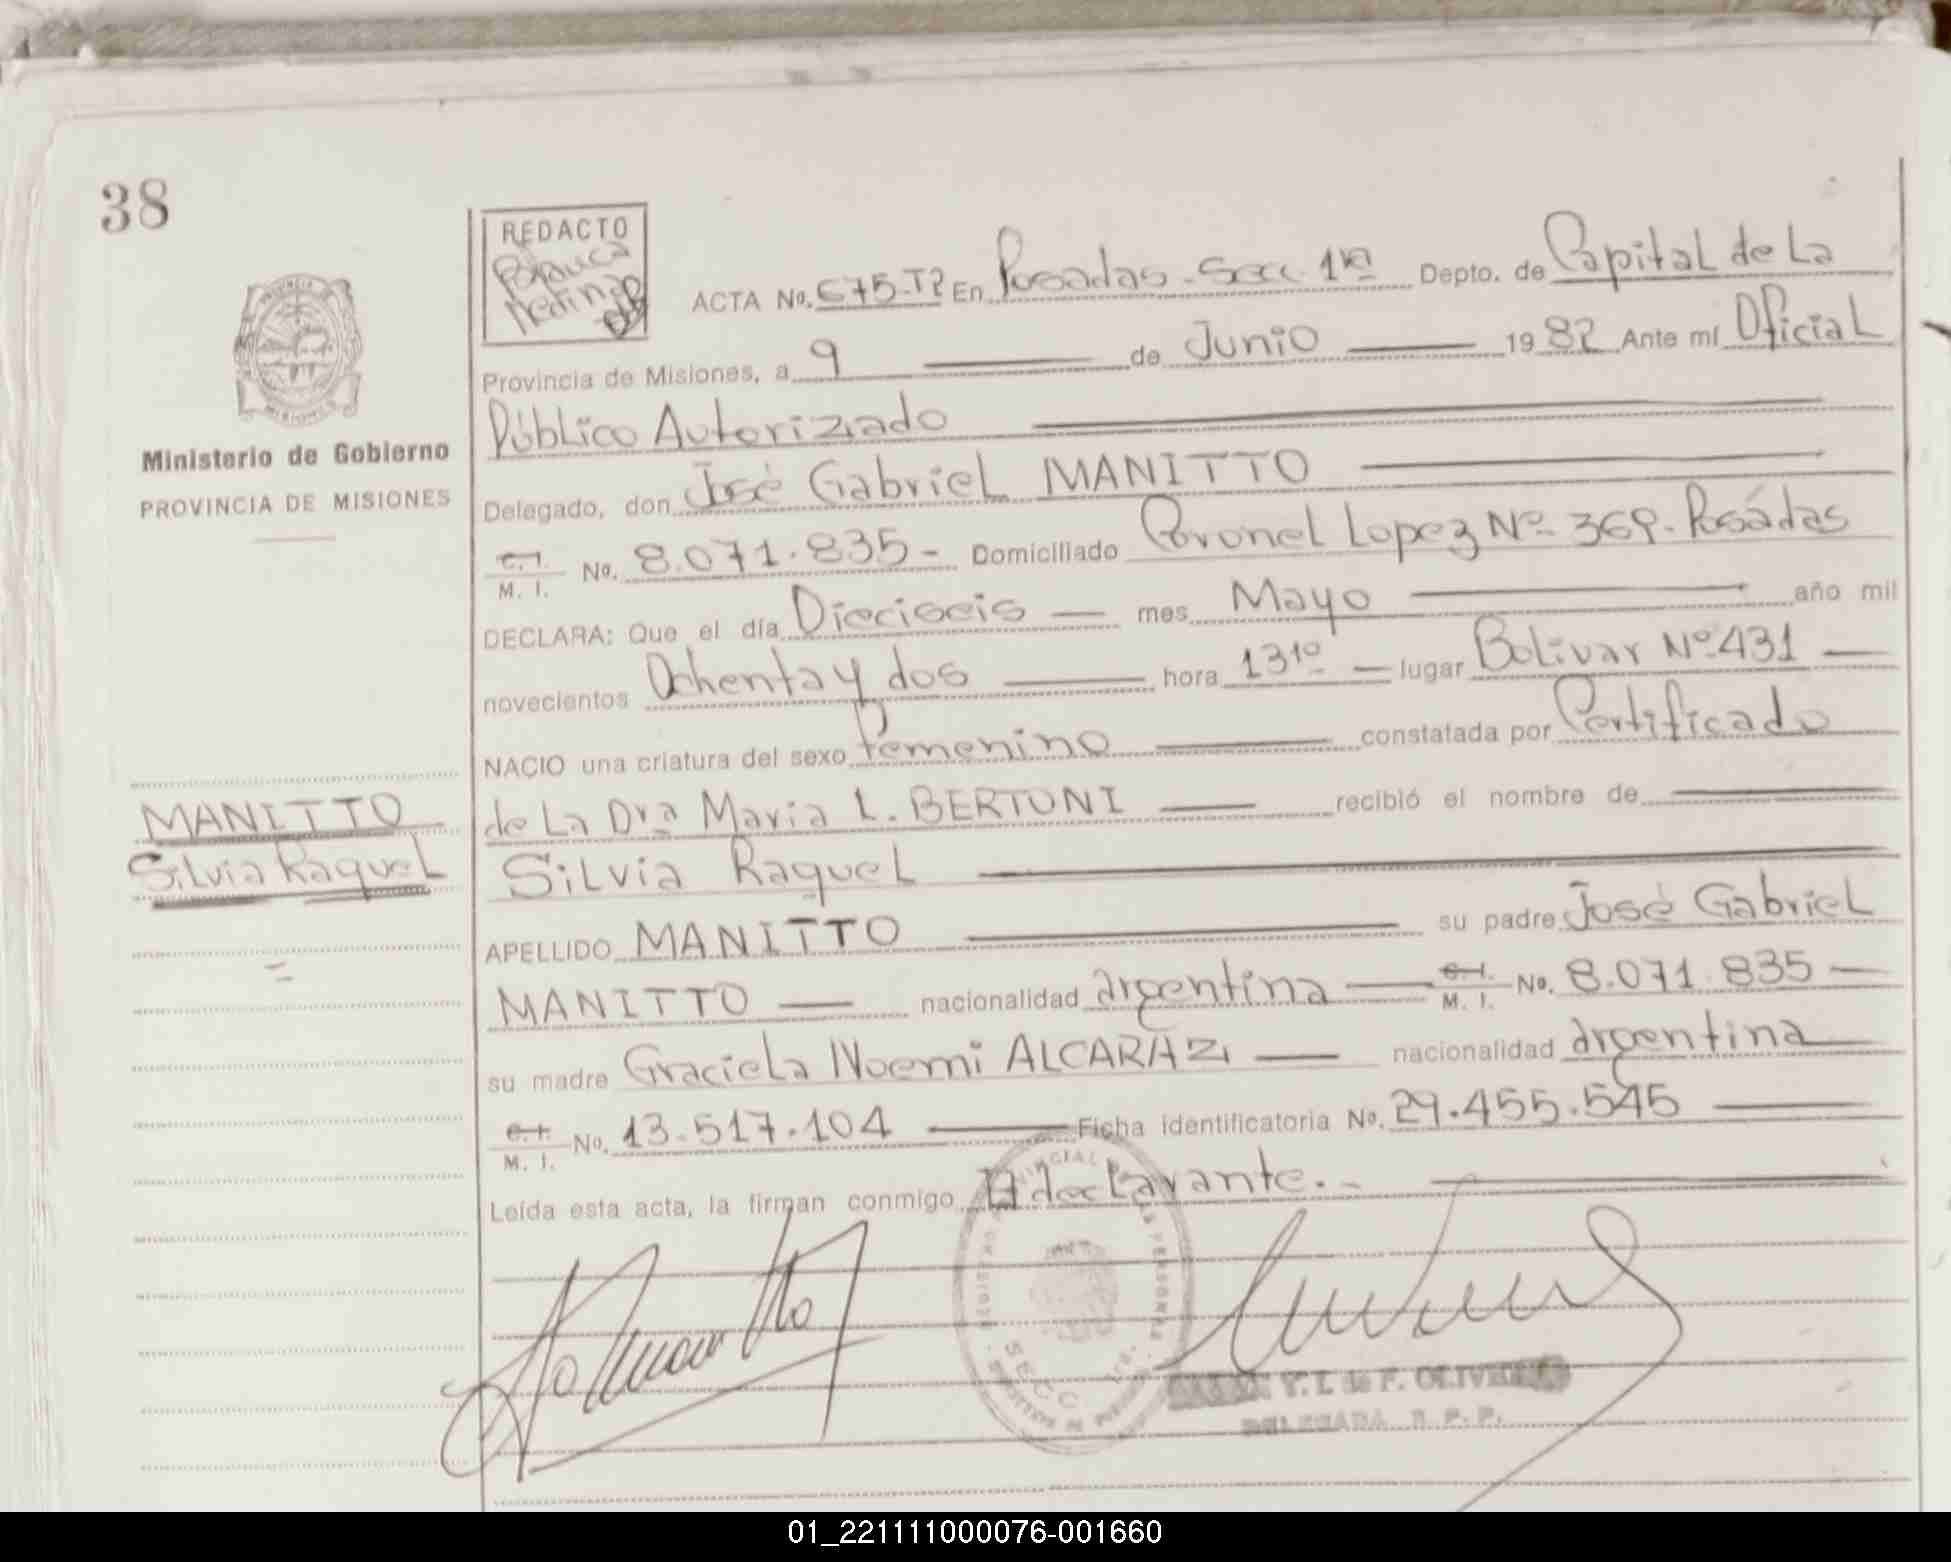 38
REDACTO
Medina
ACTA No. 675-Tº2 En Posadas - Secc. 1ra Depto. de Capital de La
Provincia de Misiones, a 9 de Junio 1982 Ante mí Oficial
Público Autorizado
Delegado, don José Gabriel MANITTO
C. I.
M. I. No. 8.071.835- Domiciliado Coronel Lopez Nº 369- Posadas
DECLARA: Que el día Dieciseis mes Mayo año mil
novecientos Ochenta y dos hora 13¹⁰ lugar Bolivar Nº 431
NACIO una criatura del sexo femenino constatada por Certificado
de La Dra Maria L. BERTONI recibió el nombre de
Silvia Raquel
APELLIDO MANITTO su padre José Gabriel
MANITTO nacionalidad argentina C. I.
M. I. No. 8.071.835
su madre Graciela Noemi ALCARAZ nacionalidad argentina
C. I.
M. I. No. 13.517.104 Ficha identificatoria No. 29.455.545
Leída esta acta, la firman conmigo El declarante.-
PROVINCIA DE MISIONES
Ministerio de Gobierno
PROVINCIA DE MISIONES
MANITTO
Silvia Raquel
SECC. 1ra.
Y. I. de F. OLIVEIRA
DELEGADA R. P. P.
01_221111000076-001660